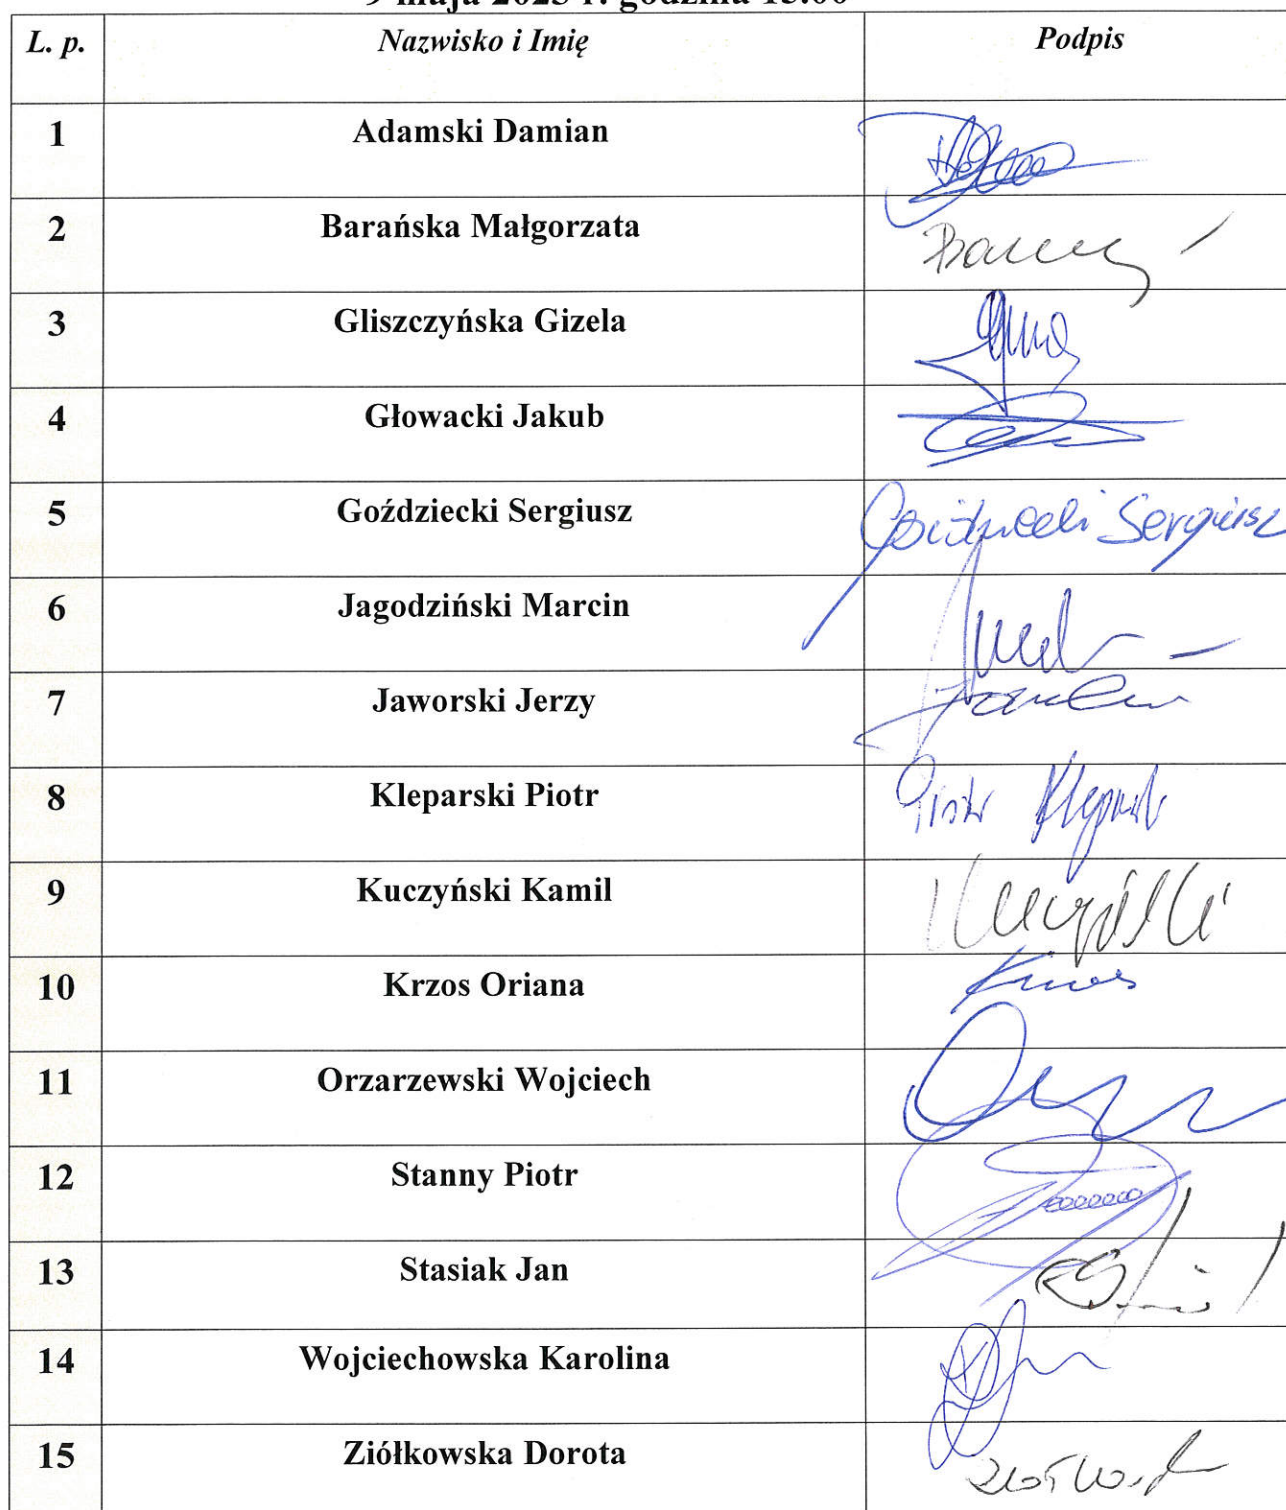 9 maja 2023 r. godzina 15.00
L. p. Nazwisko i Imię Podpis
1 Adamski Damian
2 Barańska Małgorzata
3 Gliszczyńska Gizela
4 Głowacki Jakub
5 Goździecki Sergiusz Goździecki Sergiusz
6 Jagodziński Marcin
7 Jaworski Jerzy
8 Kleparski Piotr Piotr
9 Kuczyński Kamil
10 Krzos Oriana Krzos
11 Orzarzewski Wojciech
12 Stanny Piotr
13 Stasiak Jan
14 Wojciechowska Karolina
15 Ziółkowska Dorota